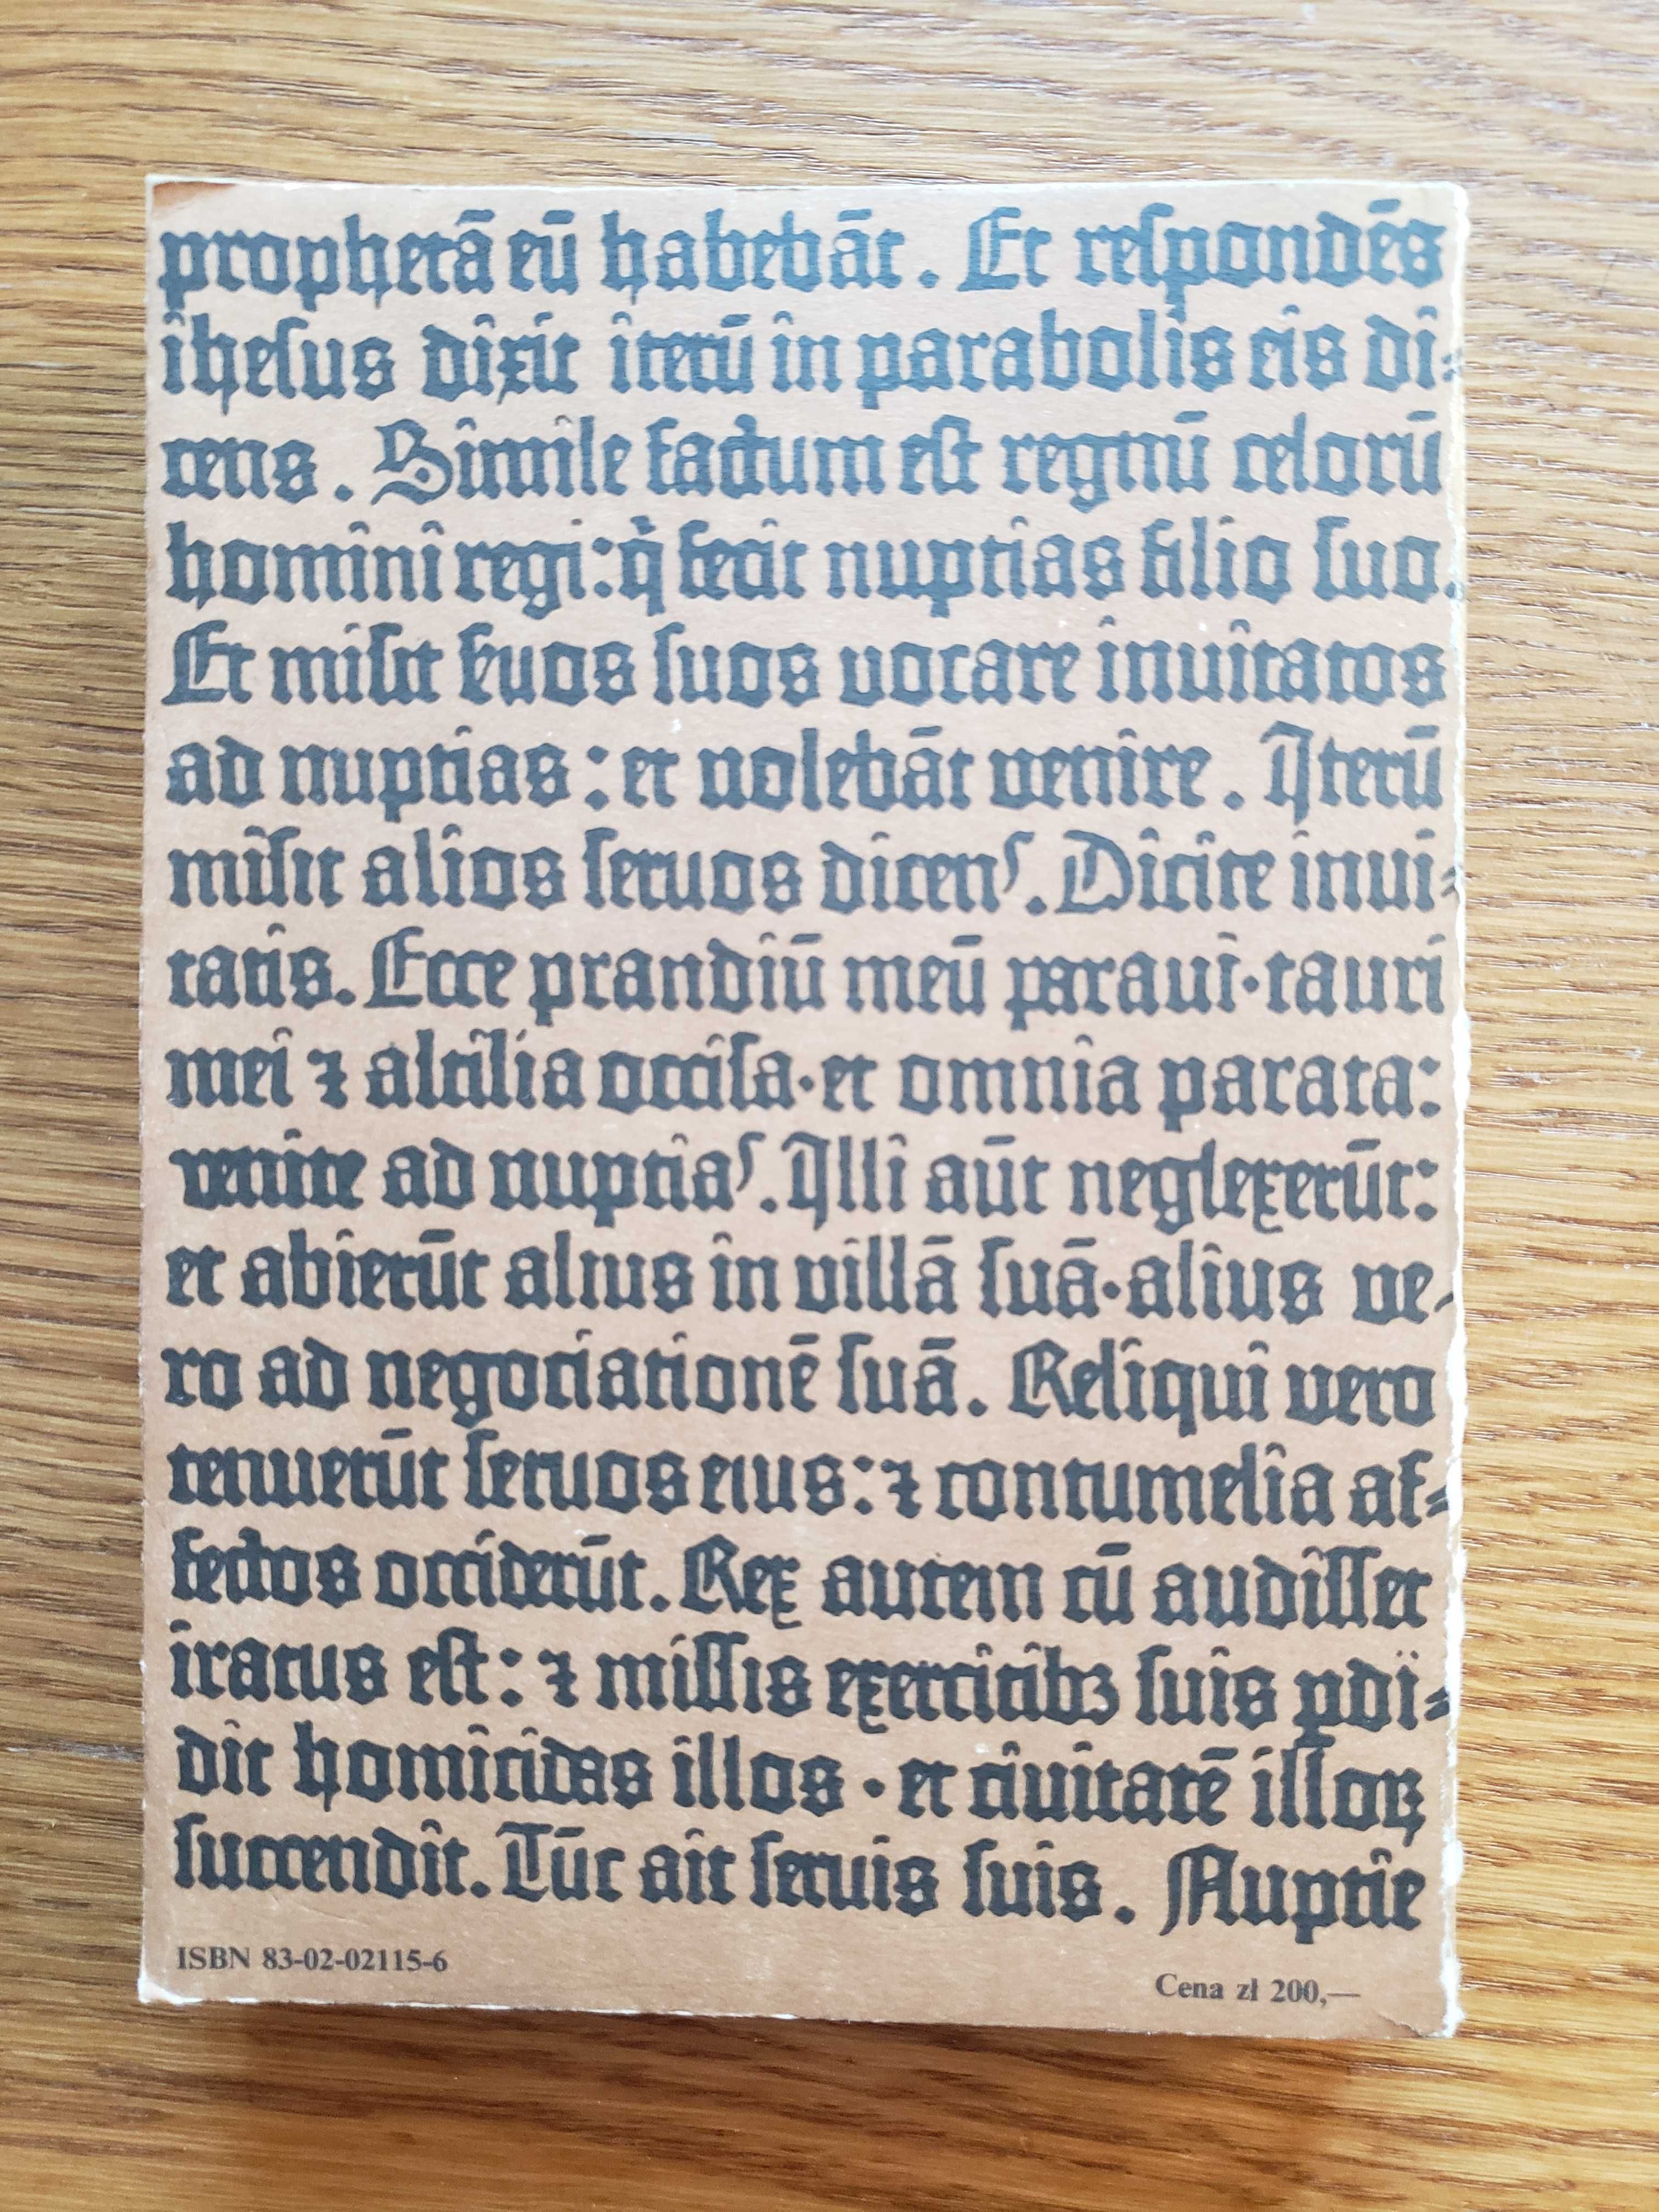 prophetā eū habebāt. Et respondēs
ihesus dixit iterū in parabolis eis di⸗
cens. Simile factum est regnū celorū
homini regi: q̇ fecit nuptias filio suo.
Et misit ẜuos suos vocare invitatos
ad nuptias: et nolebāt venire. Iterū
misit alios servos dicenˢ. Dicite invi⸗
tatis. Ecce prandiū meū paravi·tauri
mei ⁊ altilia occisa·et omnia parata:
venite ad nuptiaˢ. Illi aūt neglexerūt:
et abierūt alius in villā suā·alius ve⸗
ro ad negociationē suā. Reliqui vero
tenuerūt servos eius: ⁊ contumelia af⸗
fectos occiderūt. Rex autem cū audisset
iratus est: ⁊ missis exercitibꝫ suis ꝑdi⸗
dit homicidas illos·et civitatē illoꝝ
succendit. Tūc ait servis suis. Nuptie
ISBN 83-02-02115-6
Cena zł 200,—